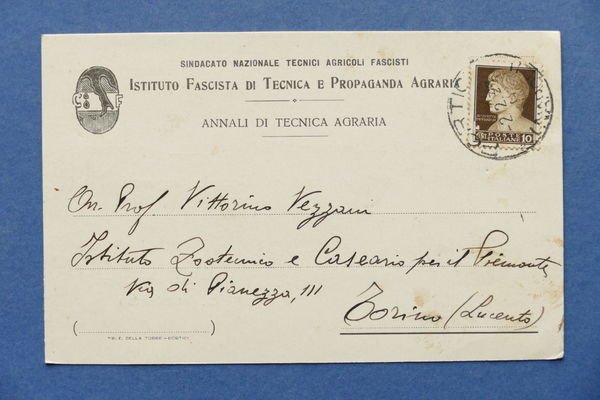 SINDACATO NAZIONALE TECNICI AGRICOLI FASCISTI
ISTITUTO FASCISTA DI TECNICA E PROPAGANDA AGRARIA
ANNALI DI TECNICA AGRARIA
POSTE
ITALIANE 10
On. Prof Vittorino Vezzani
Istituto Zootecnico e Caseario per il Piemonte
Via di Pianezza, 111
Torino (Lucento)
( )
TIP. E. DELLA TORRE - PORTICI